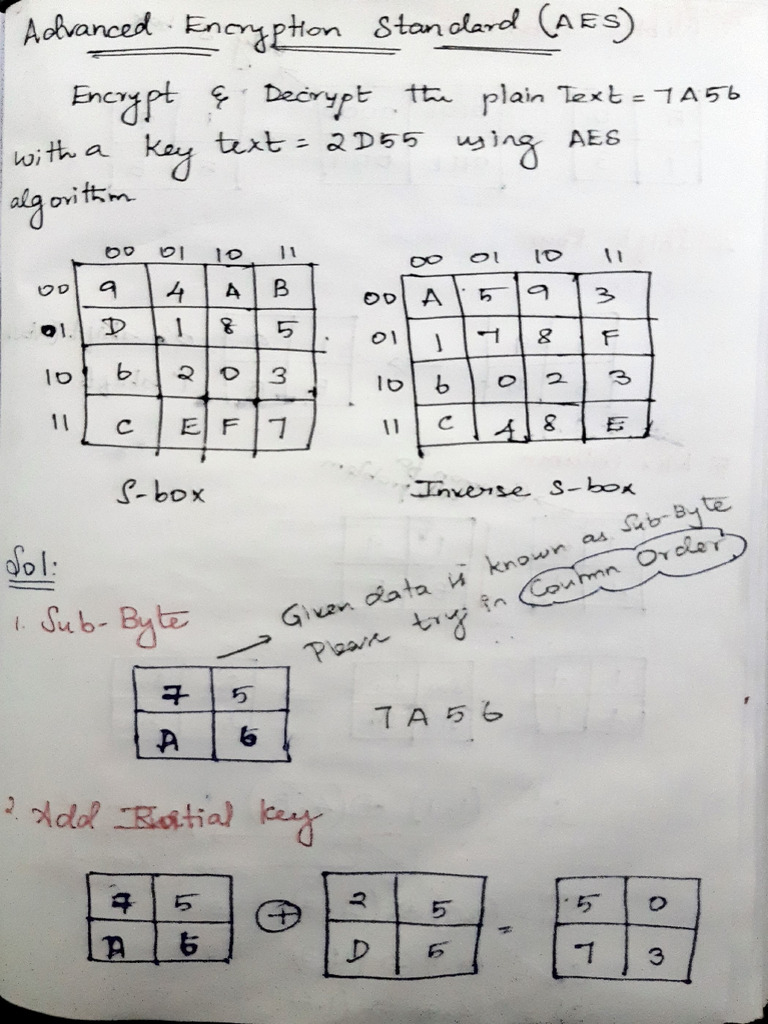 Advanced Encryption Standard (AES)
Encrypt & Decrypt the plain Text = 7A56
with a key text = 2D55 using AES
algorithm
00 01 10 11
00 9 4 A B
01 D 1 8 5
10 6 2 0 3
11 C E F 7
S-box
00 01 10 11
00 A 5 9 3
01 1 7 8 F
10 6 0 2 3
11 C 4 8 E
Inverse S-box
Sol:
1. Sub-Byte
Given data is known as Sub-Byte
Please try in Coumn Order
7 5
A 6
7 A 5 6
2. Add Initial key
7 5
A 6
⊕
2 5
D 5
=
5 0
7 3